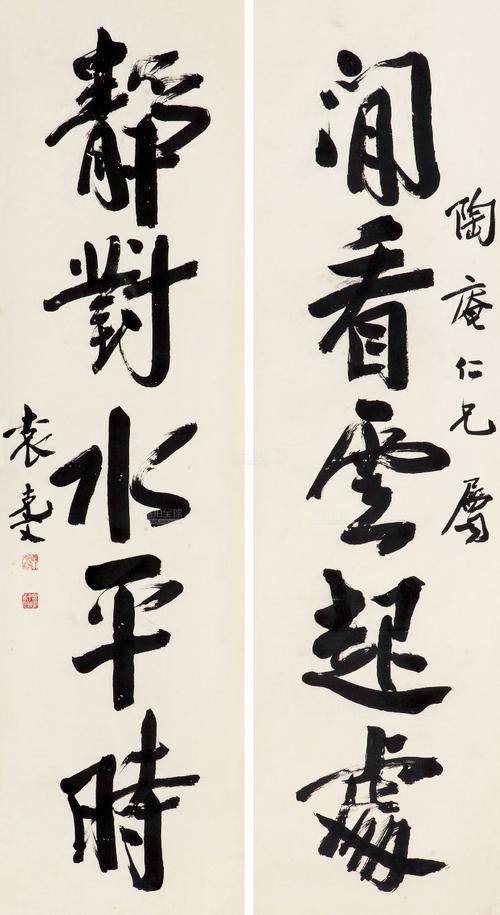 陶庵仁兄屬
閒看雲起處
靜對水平時
袁克文